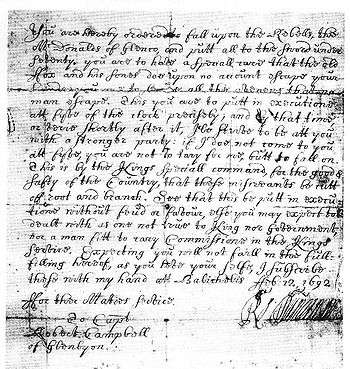 You are hereby ordered to fall upon the Rebells, the
McDonalds of Glenco, and putt all to the sword under
seventy. you are to have a speciall care that the old
ffox and his sones doe upon no account escape your
hands, you are to secure all the avenues that no
man escape. This you are to putt in execution
att fyve of the clock precisely; and by that time
or very shortly after it, I'le strive to be att you
with a stronger party: if I doe not come to you
att fyve, you are not to tary for me, butt to fall on.
This is by the Kings speciall command, for the good &
safty of the Country, that these miscreants be cutt
off root and branch. See that this be putt in execu-
tione without feud or favour, else you may expect to be
dealt with as one not true to King nor Government
nor a man fitt to cary Commissione in the Kings
Service. Expecting you will not faill in the full-
filling hereof, as you love your selfe, I subscribe
these with my hand att Balicholis Feb 12, 1692
ffor their Maties service
To Capt
Robert Campbell
of Glenlyon